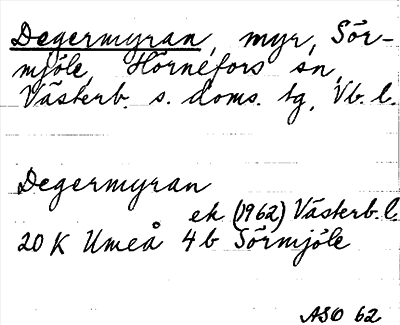 Degermyran, myr, Sör-
mjöle, Hörnefors sn,
Västerb. s. doms. tg, Vb. l.
Degermyran
ek (1962) Västerb. l.
20 K Umeå 4b Sörmjöle
ASO 62